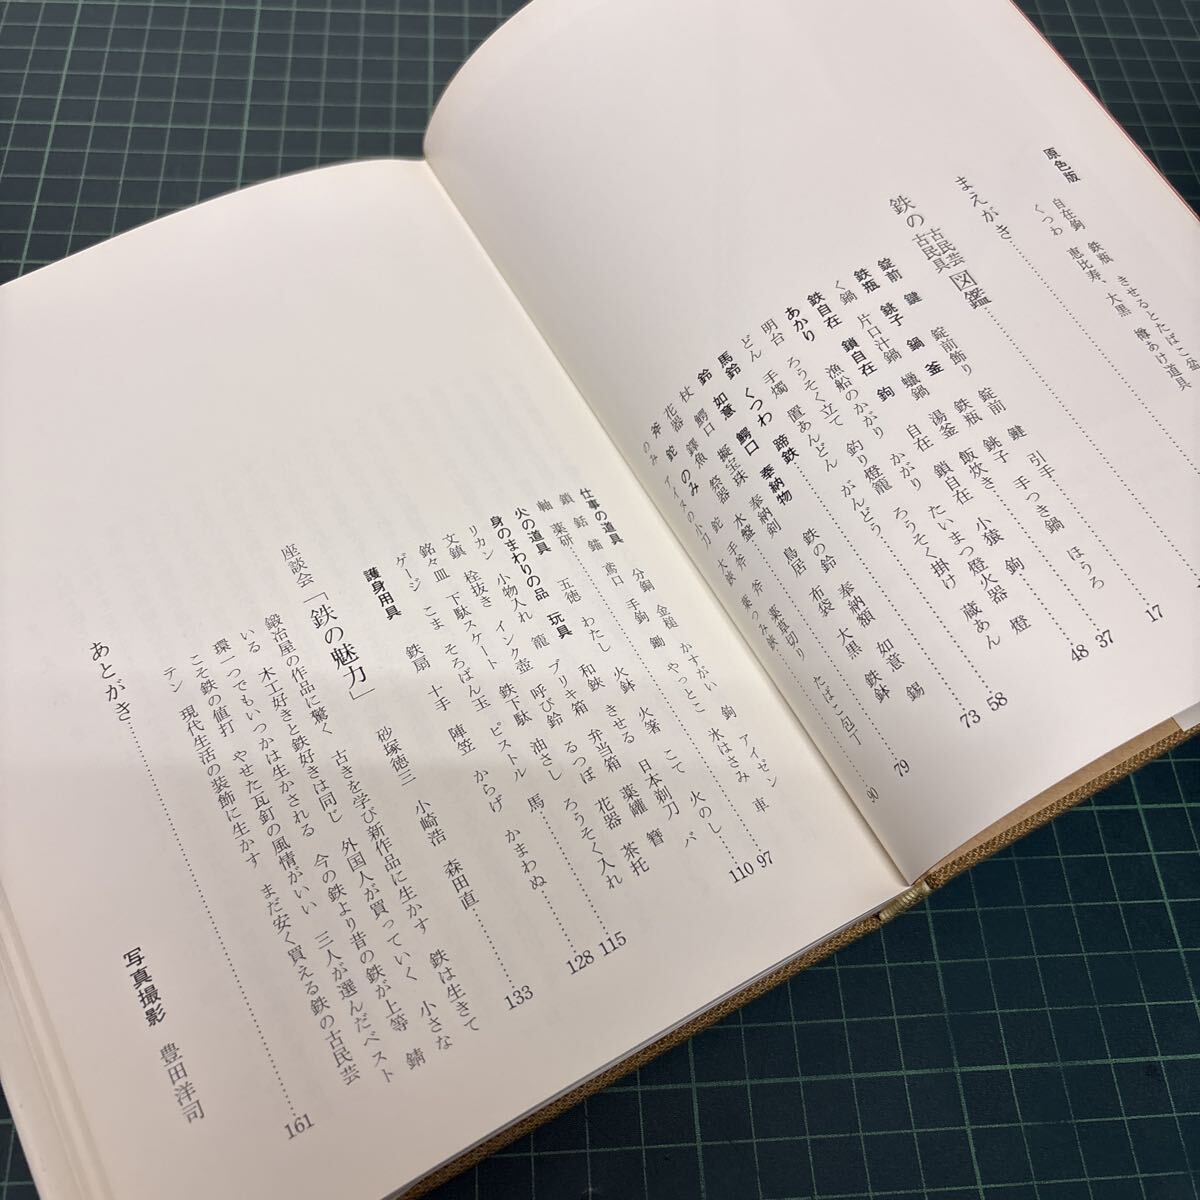 原色版
自在鉤 鉄瓶 きせるとたばこ盆
くつわ 恵比寿、大黒 樽あけ道具
まえがき……17
鉄の古民芸古民具図鑑
錠前 鍵 錠前飾り 錠前 鍵 引手 ほうろ
く鍋 片口汁鍋 蠟鍋 鉄瓶 銚子 手つき鍋
鉄瓶 銚子 鍋 釜 湯釜 飯炊き 37
鉄自在 鎖自在 鉤 自在 鎖自在 小猿 鉤 48
あかり 漁船のかがり かがり たいまつ燈火器 燈
明台 ろうそく立て 釣り燈籠 ろうそく掛け 蔵あん
どん 手燭 置あんどん がんどう 58
馬鈴 くつわ 蹄鉄 73
鈴 如意 鰐口 奉納物 鉄の鈴 奉納額 如意 錫
杖 鰐口 擬宝珠 奉納剣 鳥居 布袋 大黒 鉄鉢
花器 鐸 魚 祭器 水盤 79
斧 鉈 のみ 手斧 斧 藁直切り たばこ包丁
のみ アイヌの小刀 鉈 大鋏 葉つみ鋏 90
仕事の道具 分銅 金槌 かすがい 鉤 アイゼン
鎖 銛 錨 鳶口 手鉤 鋤 やっとこ 氷はさみ 車
軸 薬研 97
火の道具 五徳 わたし 火鉢 火箸 こて 火のし 110
身のまわりの品 玩具 和鋏 きせる 日本剃刀 バ
リカン 小物入れ 籠 ブリキ箱 弁当箱 薬罐 簪
文鎮 栓抜き インク壺 呼び鈴 るつぼ 花器 茶托
銘々皿 下駄スケート 鉄下駄 油さし ろうそく入れ
ゲージ こま そろばん玉 ピストル 馬 115
護身用具 鉄扇 十手 陣笠 からげ かまわぬ 128
座談会「鉄の魅力」 砂塚徳三 小崎浩 森田直……133
鍛冶屋の作品に驚く 古きを学び新作品に生かす 鉄は生きて
いる 木工好きと鉄好きは同じ 外国人が買っていく 小さな
環一つでもいつかは生かされる 今の鉄より昔の鉄が上等 錆
こそ鉄の値打 やせた瓦釘の風情がいい 三人が選んだベスト
テン 現代生活の装飾に生かす まだ安く買える鉄の古民芸
あとがき……161
写真撮影 豊田洋司